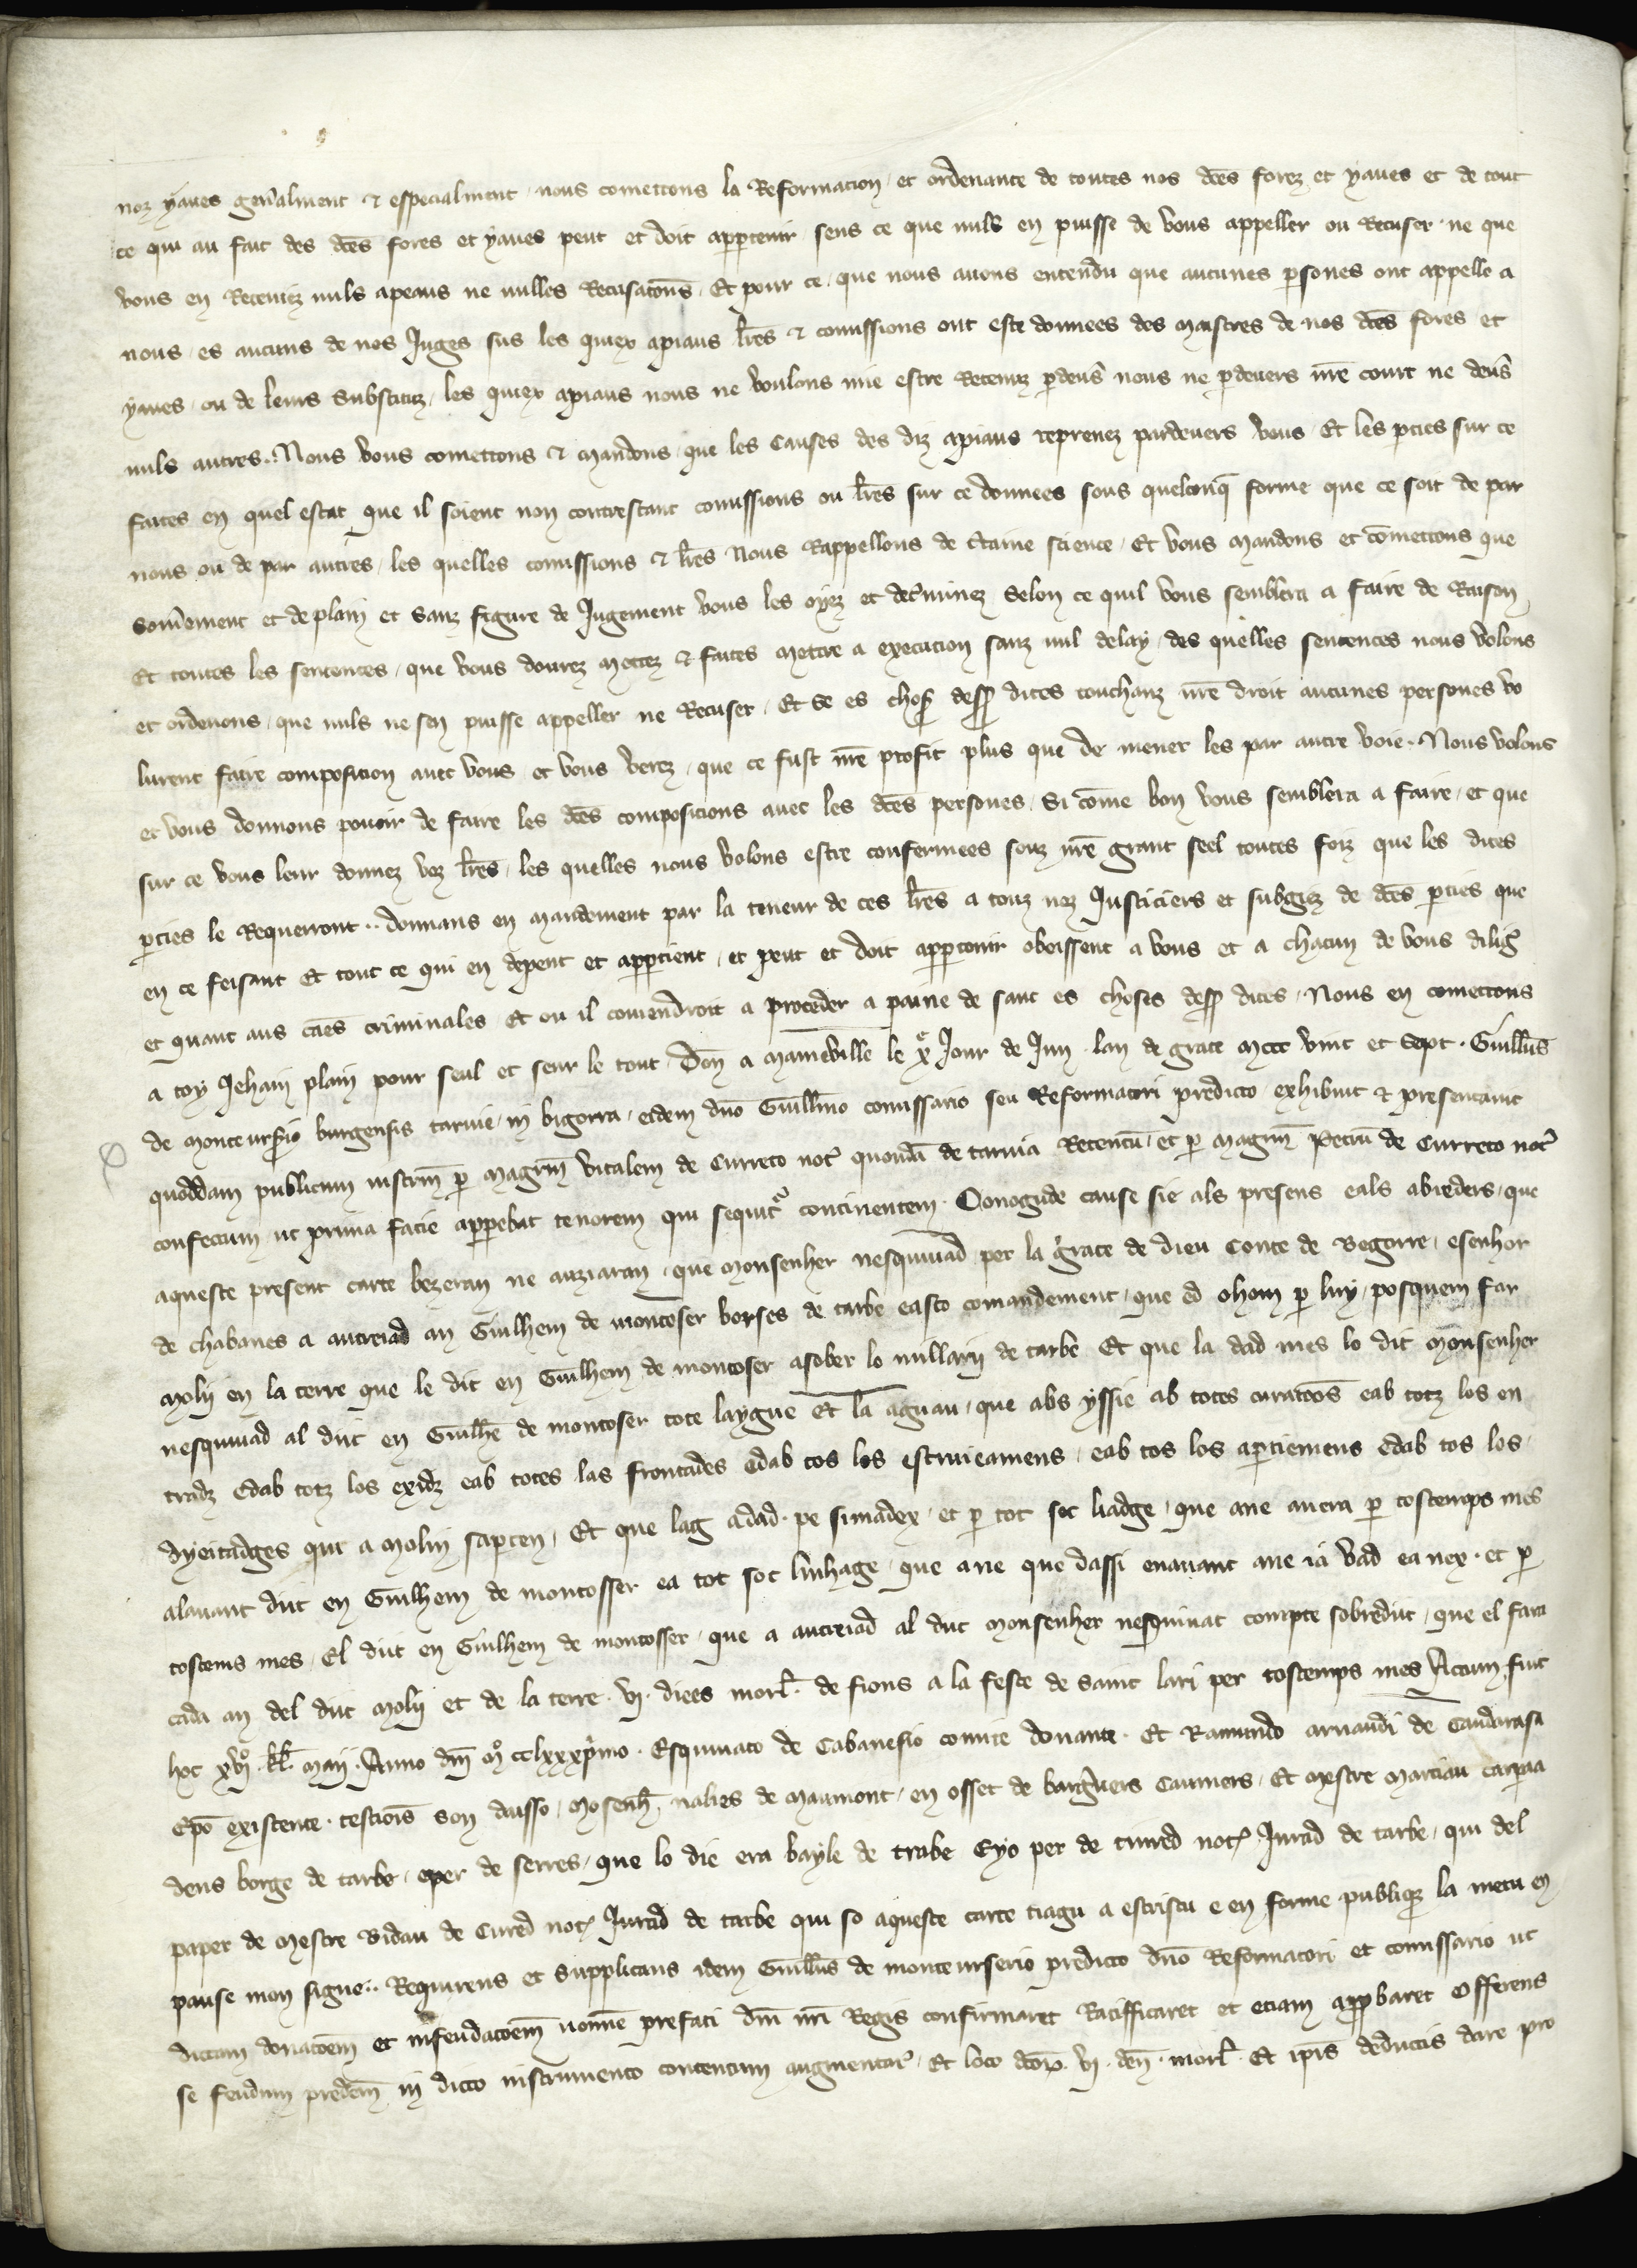 noz yaues gen̄alment & especialment nous cometons la Reformacion et ordenance de toutes nos dc̄es forez et yaues et de tout
ce qui au fait des dc̄es fores et yaues peut et doit apꝑtenir sens ce que nuls en puisse de vous appeller ou Recuser ne que
vous en Receuez nuls apeaus ne nulles Recusacōns Et pour ce que nous auons entendu que aucunes ꝑsones ont appelle a
nous es aucuns de nos Juges sus les quiex apiaus lr̄es & comissions ont este donnees des maistres de nos dc̄es fores et
yaues ou de leurs substituz les quiex apiaus nous ne voulons mie estre Receuz ꝑdeūs nous ne ꝑdeuers nr̄e court ne deūs
nuls autres. Nous vous cometons & mandons que les causes des diz apiaus reprenez pardeuers vous Et les ꝑties sur ce
faites en quel estat que il soient non contrestant comissions ou lr̄es sur ce donnees sous quelconq̄ forme que ce soit de par
nous ou de par autres les quelles comissions & lr̄es Nous Rappellons de c̄taine science Et vous mandons et cōmettons que
som̄ement et de plain et sanz figure de Jugement vous les oyez et det̄minez selon ce quil vous semblera a faire de Raison
Et toutes les sentences que vous donrez mettez & faites mettre a execucion sanz nul delay des quelles sentences nous volons
et ordenons que nuls ne sen puisse appeller ne Recuser Et se es chos̄ dess̄ dites touchanz nr̄e droit aucunes persones vo
lurent faire composicion auec vous et vous verez que ce fust nr̄e profit plus que de mener les par autre voie. Nous volons
et vous donnons pouoir de faire les dc̄es composicions auec les dc̄es persones Si cōme bon vous semblera a faire et que
sur ce vous leur donnez voz lr̄es les quelles nous volons estre confermees souz nr̄e grant seel toutes foiz que les dites
ꝑties le Requerront.. donnans en mandement par la teneur de ces lr̄es a touz noz Justiciers et subgiez de dc̄es ꝑties que
en ce feisant Et tout ce qui en depent et apꝑtient et peut et doit apꝑtenir obeissent a vous et a chacun de vous diliḡ
et quant aus cās criminales Et ou il conuendroit a proceder a paine de sanc es choses dess̄ dites Nous en cometons
a toy Jehan plain pour seul et seur le tout Don̄ a maineville le xe Jour de Juin lan de grace mccc vint et sept. Guillūs
de monteurserio burgensis taruie in bigorra eidem dn̄o Guillm̄o comissario seu Reformatori predicto exhibuit & presentauit
quoddam publicum instrm̄ ꝑ magrm̄ vitalem de Curreto not̄ quondā de taruia Retentū et ꝑ magrm̄ Petrū de Curreto not̄
confectum ut prima facie appebat tenorem qui sequit̄ continentem. Conogude cause sie als presens eals abieders que
aqueste present carte vezeran ne auziaran que monsenher nesquiuad per la grace de dieu Conte de Begorre esenhor
de chabanes a autreiad an Guilhem de montoser borses de tarbe easto comandement que ed ohom ꝑ luy posquem far
molii en la terre que le dit en Guilhem de montoser asober lo millarii de tarbe Et que la dad mes lo dit monsenher
nesquiuad al diit en Guilhē de montoser tote laygue Et la aguau que abs yssie ab totes curatoōs eab totz los en
tradz Edab totz los exidz eab totes las frontades edab tos los estruieamens eab tos los aꝑtiemens Edab tos los
dyeitadges qui a molin saꝑten Et que lag adad pe simadex et ꝑ tot soc liadge que ane auera ꝑ tostemps mes
alauant diit en Guilhem de montosser ea tot soc linhage que ane que dassi enauant ane ia vad ea nex et ꝑ
tostems mes El diit en Guilhem de montosser que a autreiad al diit monsenher nesquiuat compte sobrediit que el fara
cada an del diit molii et de la terre vi diees morl̄. de fious a la feste de saint lari per tostemps mes Actum fuit
hoc xvio kl̄ maij. Anno dn̄i mo cclxxxpr̄mo. Esquiuato de Cabanesio comite donante Et Ramundo arnaudi de Caudarasa
Ep̄o existente testiōis son dausso mosenh̄ nalies de maumont en osset de bargiuers Caumers Et mestre marciau carpaa
dens borge de tarbe eper de serres que lo die era bayle de trabe Eyo per de tiured not̄ Jurad de tarbe qui del
paper de mestre Bidau de Cured not̄ Jurad de tarbe qui so aqueste carte tiagu a escriscu e en forme publiq̄ la metu en
pause mon signe.. Requirens et supplicans idem Guillūs de monteurserio predicto dn̄o Reformatori et comissario ut
dictam donatoēm et infeudatoēm nomīe prefati dn̄i nr̄i Regis confirmaret Ratifficaret et etiam approbaret Offerens
se feudum predc̄m in dicto instrumento contentum augmentar̄ Et loco dc̄oꝝ vi den̄ morl̄. Et ip̄is deductis dare pro